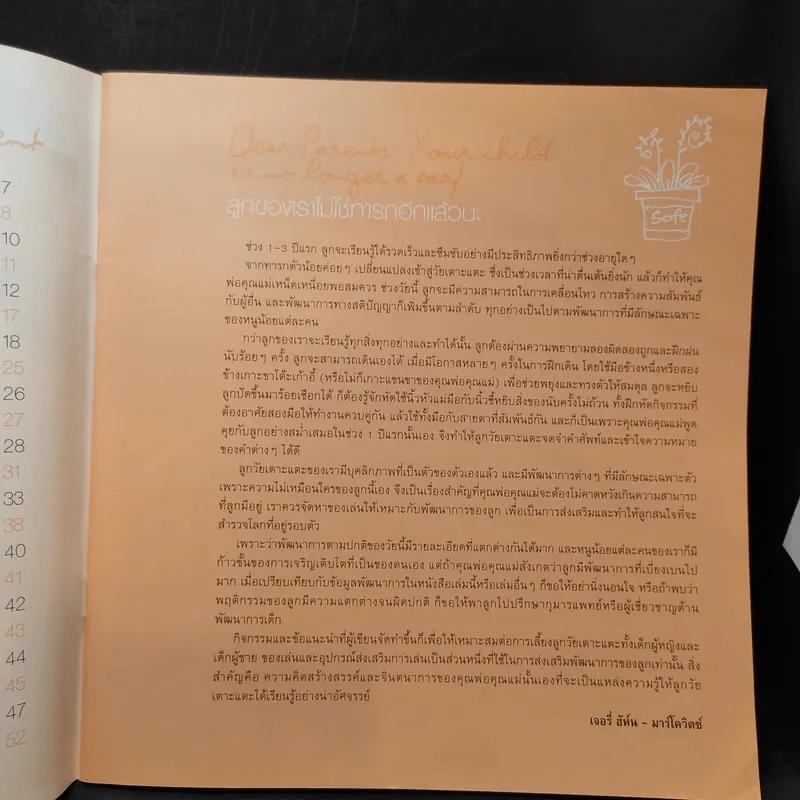 ent
7
8
10
11
12
17
18
25
26
27
28
31
33
38
40
41
42
43
44
45
47
52
Dear Parents: Your child
is no longer a baby!
Sofe
ลูกของเราไม่ใช่ทารกอีกแล้วนะ
ช่วง 1-3 ปีแรก ลูกจะเรียนรู้ได้รวดเร็วและซึมซับอย่างมีประสิทธิภาพยิ่งกว่าช่วงอายุใดๆ
จากทารกตัวน้อยค่อยๆ เปลี่ยนแปลงเข้าสู่วัยเตาะแตะ ซึ่งเป็นช่วงเวลาที่น่าตื่นเต้นยิ่งนัก แล้วก็ทำให้คุณ
พ่อคุณแม่เหน็ดเหนื่อยพอสมควร ช่วงวัยนี้ ลูกจะมีความสามารถในการเคลื่อนไหว การสร้างความสัมพันธ์
กับผู้อื่น และพัฒนาการทางสติปัญญาก็เพิ่มขึ้นตามลำดับ ทุกอย่างเป็นไปตามพัฒนาการที่มีลักษณะเฉพาะ
ของหนูน้อยแต่ละคน
กว่าลูกของเราจะเรียนรู้ทุกสิ่งทุกอย่างและทำได้นั้น ลูกต้องผ่านความพยายามลองผิดลองถูกและฝึกฝน
นับร้อยๆ ครั้ง ลูกจะสามารถเดินเองได้ เมื่อมีโอกาสหลายๆ ครั้งในการฝึกเดิน โดยใช้มือข้างหนึ่งหรือสอง
ข้างเกาะขาโต๊ะเก้าอี้ (หรือไม่ก็เกาะแขนขาของคุณพ่อคุณแม่) เพื่อช่วยพยุงและทรงตัวให้สมดุล ลูกจะหยิบ
ลูกปัดขึ้นมาร้อยเชือกได้ ก็ต้องรู้จักหัดใช้นิ้วหัวแม่มือกับนิ้วชี้หยิบสิ่งของนับครั้งไม่ถ้วน ทั้งฝึกหัดกิจกรรมที่
ต้องอาศัยสองมือให้ทำงานควบคู่กัน แล้วใช้ทั้งมือกับสายตาที่สัมพันธ์กัน และก็เป็นเพราะคุณพ่อคุณแม่พูด
คุยกับลูกอย่างสม่ำเสมอในช่วง 1 ปีแรกนั้นเอง จึงทำให้ลูกวัยเตาะแตะจดจำคำศัพท์และเข้าใจความหมาย
ของคำต่างๆ ได้ดี
ลูกวัยเตาะแตะของเรามีบุคลิกภาพที่เป็นตัวของตัวเองแล้ว และมีพัฒนาการต่างๆ ที่มีลักษณะเฉพาะตัว
เพราะความไม่เหมือนใครของลูกนี้เอง จึงเป็นเรื่องสำคัญที่คุณพ่อคุณแม่จะต้องไม่คาดหวังเกินความสามารถ
ที่ลูกมีอยู่ เราควรจัดหาของเล่นให้เหมาะกับพัฒนาการของลูก เพื่อเป็นการส่งเสริมและทำให้ลูกสนใจที่จะ
สำรวจโลกที่อยู่รอบตัว
เพราะว่าพัฒนาการตามปกติของวัยนี้มีรายละเอียดที่แตกต่างกันได้มาก และหนูน้อยแต่ละคนของเราก็มี
ก้าวขั้นของการเจริญเติบโตที่เป็นของตนเอง แต่ถ้าคุณพ่อคุณแม่สังเกตว่าลูกมีพัฒนาการที่เบี่ยงเบนไป
มาก เมื่อเปรียบเทียบกับข้อมูลพัฒนาการในหนังสือเล่มนี้หรือเล่มอื่นๆ ก็ขอให้อย่านิ่งนอนใจ หรือถ้าพบว่า
พฤติกรรมของลูกมีความแตกต่างจนผิดปกติ ก็ขอให้พาลูกไปปรึกษากุมารแพทย์หรือผู้เชี่ยวชาญด้าน
พัฒนาการเด็ก
กิจกรรมและข้อแนะนำที่ผู้เขียนจัดทำขึ้นก็เพื่อให้เหมาะสมต่อการเลี้ยงลูกวัยเตาะแตะทั้งเด็กผู้หญิงและ
เด็กผู้ชาย ของเล่นและอุปกรณ์ส่งเสริมการเล่นเป็นส่วนหนึ่งที่ใช้ในการส่งเสริมพัฒนาการของลูกเท่านั้น สิ่ง
สำคัญคือ ความคิดสร้างสรรค์และจินตนาการของคุณพ่อคุณแม่นั้นเองที่จะเป็นแหล่งความรู้ให้ลูกวัย
เตาะแตะได้เรียนรู้อย่างน่าอัศจรรย์
เจอรี่ ฮัห์น - มาร์โควิตซ์